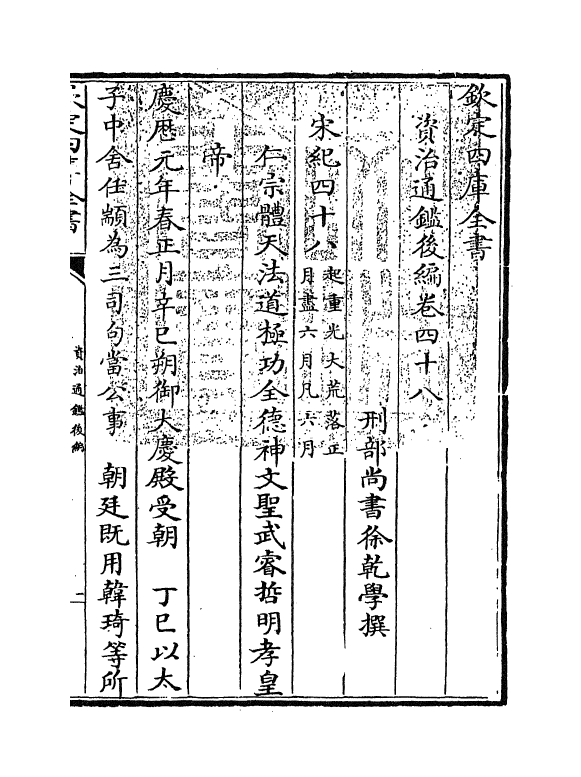 欽定四庫全書
資治通鑑後編卷四十八
刑部尚書徐乾學撰
宋紀四十八起重光大荒落正月盡六月凡六月
仁宗體天法道極功全德神文聖武睿哲明孝皇
帝
慶厯元年春正月辛巳朔御大慶殿受朝　丁巳以太
子中舍任顓為三司句當公事　朝廷既用韓琦等所
資治通鑑後編